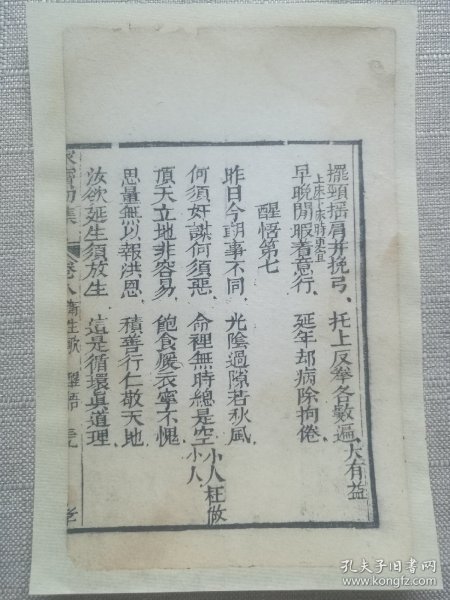 擺頸摇肩并挽弓、托上反拳各數遍、大有益
上床下床時更宜
早晚閒暇着意行、延年却病除拘倦、
醒悟第七
昨日今朝事不同、光陰過隙若秋風、
何須奸謀何須惡、命裡無時總是空、小人枉做小人、
頂天立地非容易、飽食煖衣寧不愧、
思量無以報洪恩、積善行仁敬天地、
汝欲延生須放生、這是循環眞道理、
家寶初集 卷八 衛生歌 醒悟
孔夫子旧书网
www.kongfz.com